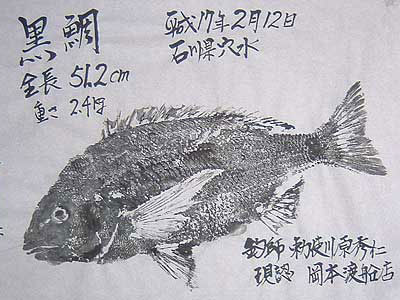 黒鯛
全長 51.2cm
重さ 2.4㎏
平成17年2月12日
石川県穴水
釣師 川原秀仁
現認 岡本渡船店